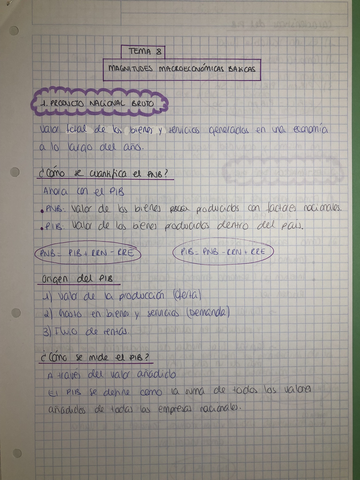 TEMA 8
MAGNITUDES MACROECONÓMICAS BÁSICAS
1. PRODUCTO NACIONAL BRUTO
Valor total de los bienes y servicios generados en una economía
a lo largo del año.
¿Cómo se cuantifica el PNB?
Ahora con el PIB
• PNB: Valor de los bienes producidos con factores nacionales.
• PIB: Valor de los bienes producidos dentro del país.
PNB = PIB + RRN - RRE
PIB = PNB - RRN + RRE
Origen del PIB
1) Valor de la producción (Oferta)
2) Gasto en bienes y servicios (Demanda)
3) Flujo de rentas.
¿Cómo se mide el PIB?
A través del valor añadido
El PIB se define como la suma de todos los valores
añadidos de todas las empresas nacionales.